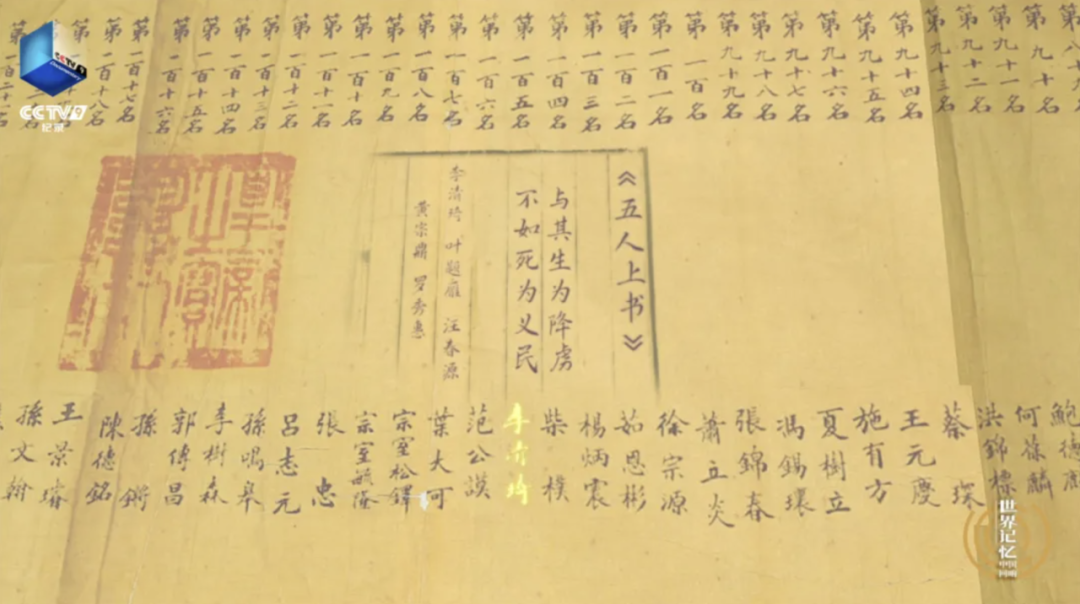 CCTV 9
纪录
第九十名
第九十一名
第九十二名
第九十三名
第九十四名
第九十五名
第九十六名
第九十七名
第九十八名
第九十九名
第一百名
第一百一名
第一百二名
第一百三名
第一百四名
第一百五名
第一百六名
第一百七名
第一百八名
第一百九名
第一百十名
第一百十一名
第一百十二名
第一百十三名
第一百十四名
第一百十五名
第一百十六名
第一百十七名
第一百十八名
《五人上书》
与其生为降虏
不如死为义民
李清琦 叶题雁 汪春源
黄宗鼎 罗秀惠
皇帝之寶
何葆麟
洪錦標
蔡琛
王元慶
施有方
夏樹立
馮錫環
張錦春
蕭立炎
徐宗源
茹恩彬
楊炳震
柴樸
李清琦
范公謨
葉大可
宗室松鐸
宗室毓隆
張忠
呂志元
孫鳴皋
李樹森
郭傳昌
孫鏘
陳德銘
王景濬
孫文翰
世界记忆
中国回响